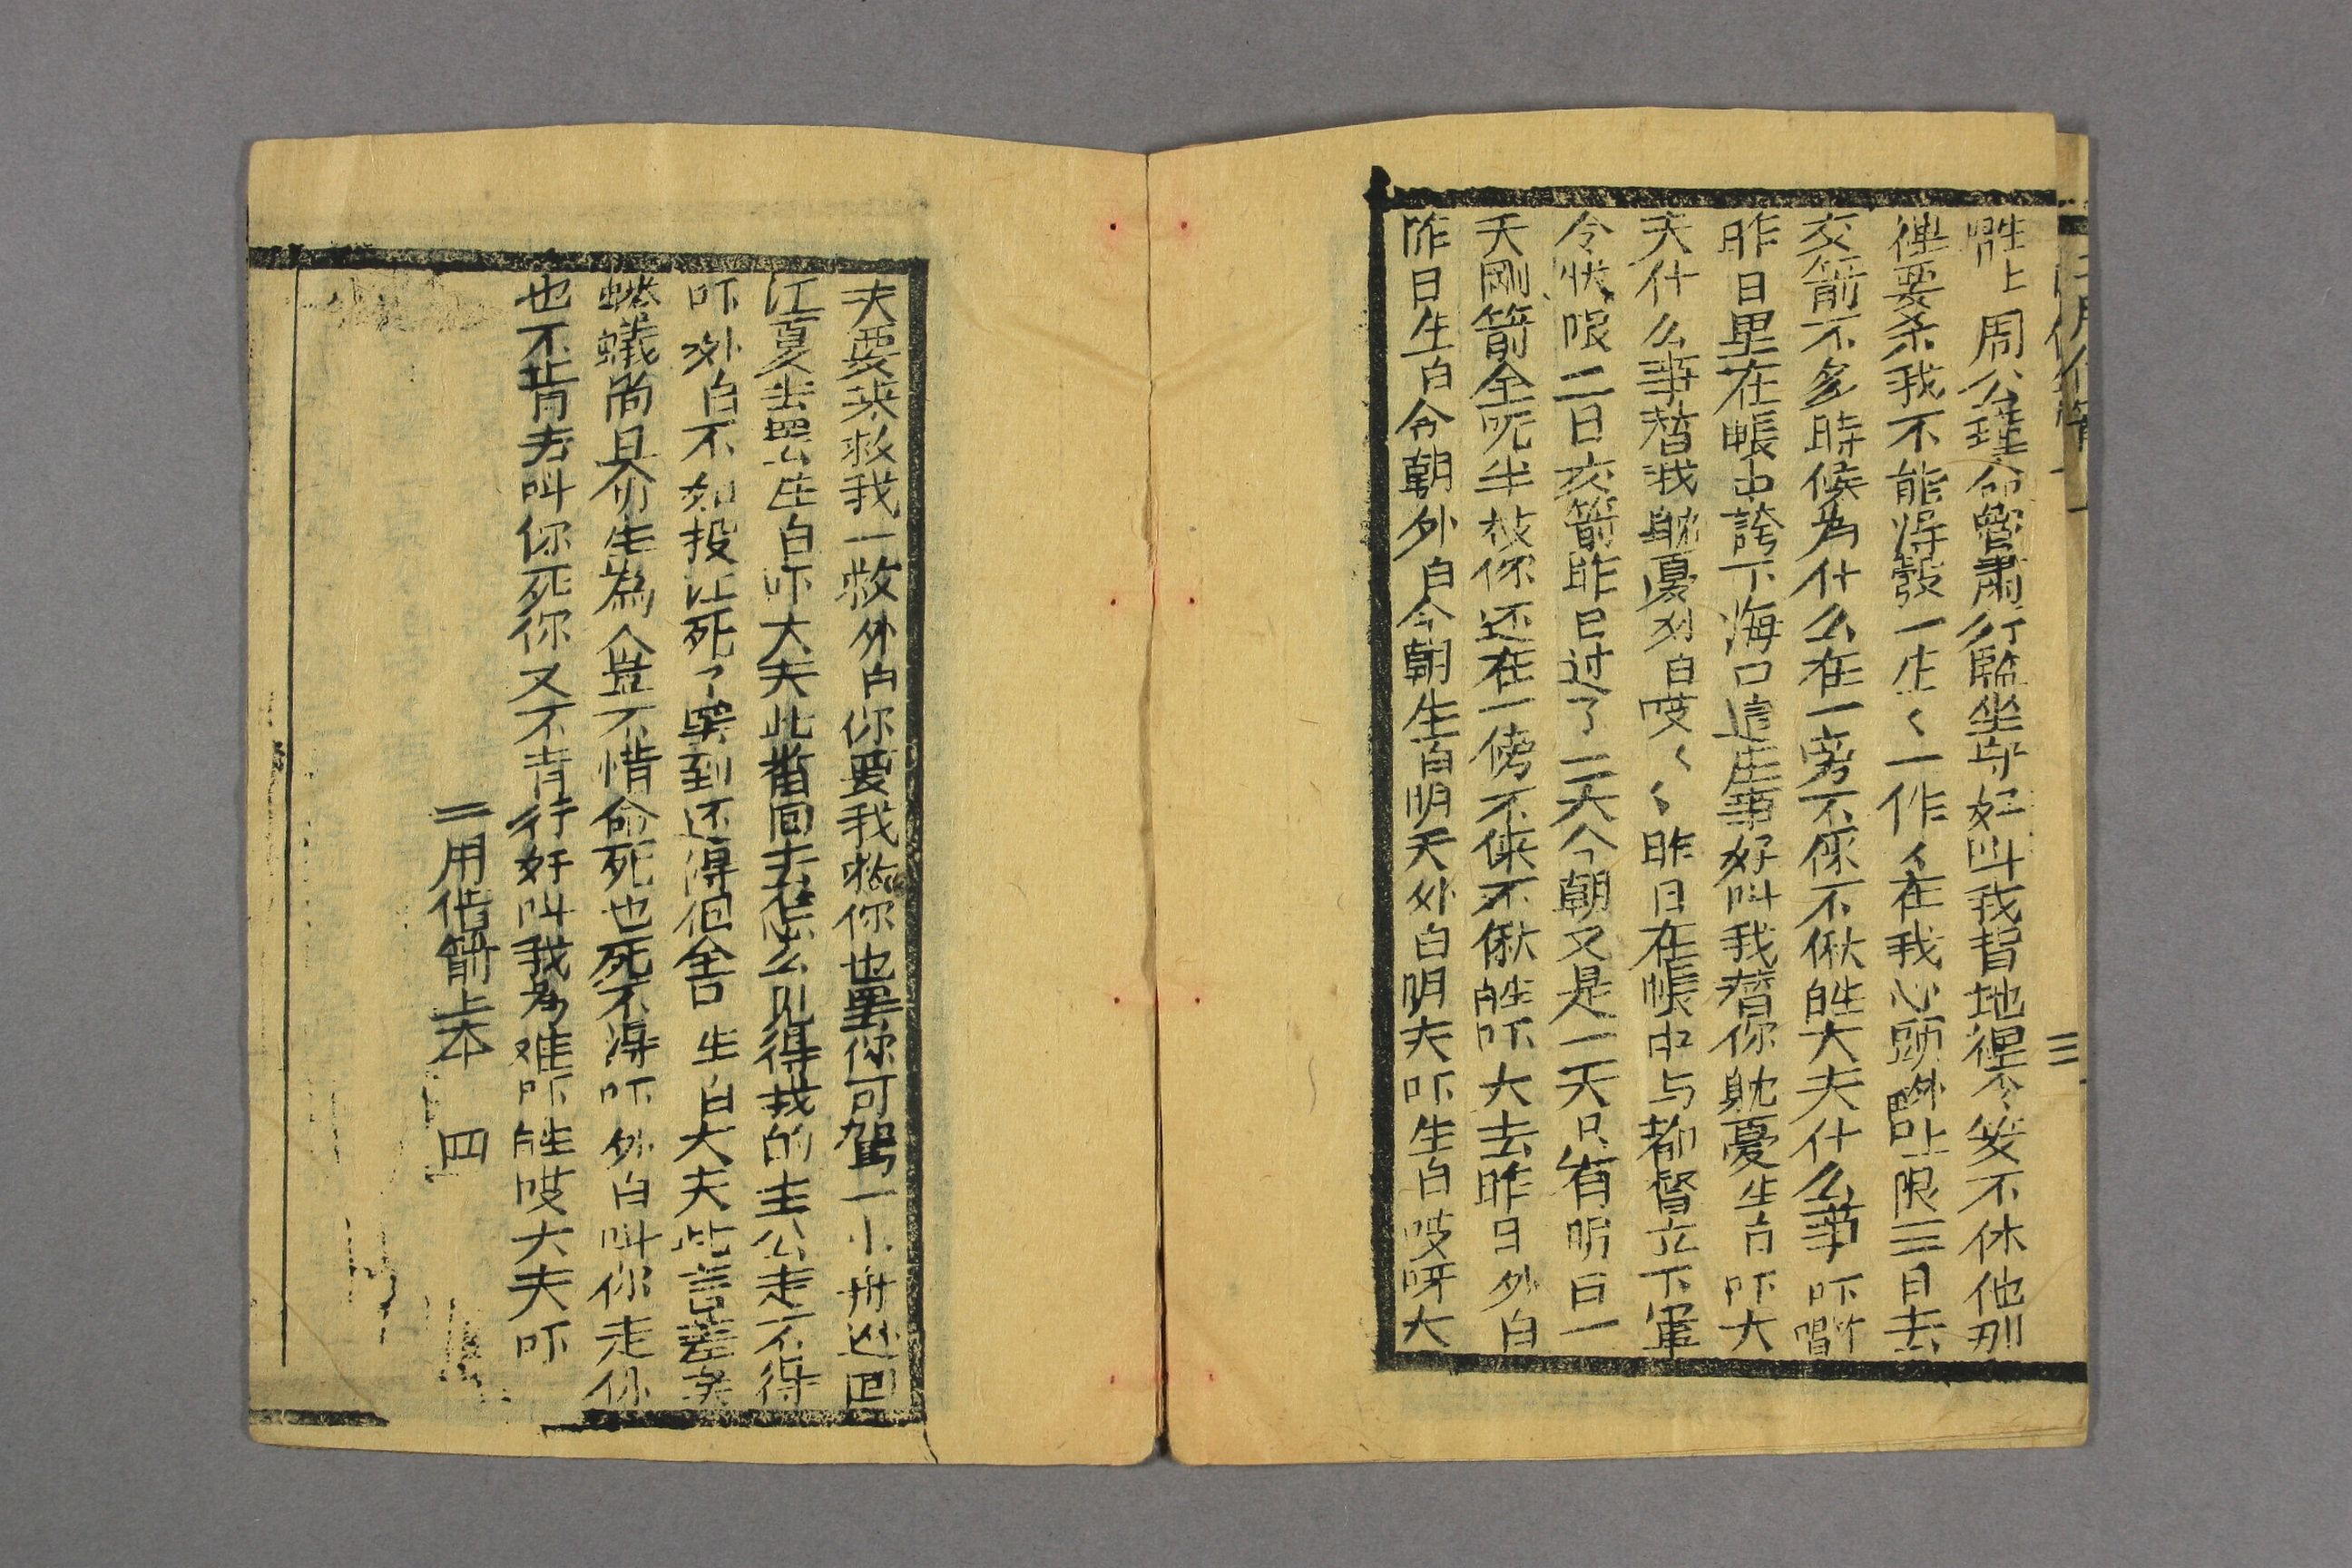 周公瑾命魯肃行監坐守好叫我暗地裡不安不休他那
裡要杀我不能得彀一生〻一作〻在我心頭外上限三日去
交箭不多時候為什么在一旁不倸不偢大夫什么事吓
昨日里在帳中誇下海口這庄事好叫我替你躭憂生白吓大
夫什么事替我躭憂外白哎〻〻昨日在帳中与都督立下軍
令状限三日交箭昨日过了一天今朝又是一天只有明日一
天剛箭全呒半枝你还在一傍不倸不偢吓大夫昨日外白
昨日生白今朝外白今朝生白明天外白明天吓生白哎呀大
夫要来救我一救外白你要我救你也罢你可駕一小舟迯回
江夏去罢生白吓大夫此番回去怎么见得我的主公走不得
吓外白不如投江死了罢到还得個 生白大夫此言差矣
螻蟻尚且貪生為人豈不惜命死也死不得吓外白叫你走你
也不肯去叫你死你又不肯行好叫我為难吓 哎大夫吓
二用借箭上本 四
三